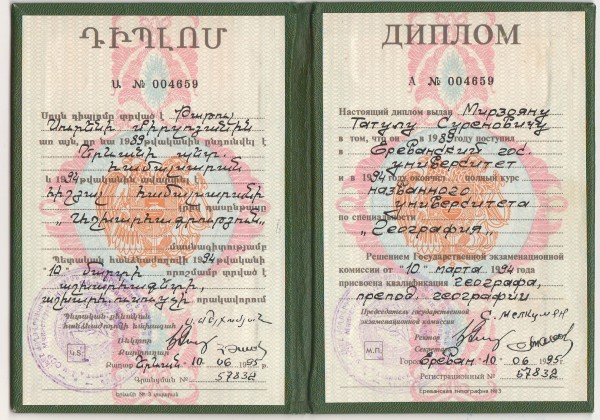 ԴԻՊԼՈՄ
Ա № 004659
Սույն դիպլոմը տրված է Թաթուլ
Սուրենի Միրզոյանին
առ այն, որ նա 1989 թվականին ընդունվել է
Երևանի պետ.
համալսարան
և 1994 թվականին ավարտել
նիշյալ համալսարանի
լրիվ դասընթացը
„Աշխարհագրություն„
մասնագիտությամբ
Պետական հանձնաժողովի 1994 թվականի
"10" մարտի որոշմամբ տրված է
աշխարհագետի,
աշխարհ. ուսուցչի որակավորում
Պետական քննական
հանձնաժողովի նախագահ
Ռեկտոր
Քարտուղար
Քաղաք Երևան 10 06 1995 թ.
Գրանցման № 57832
Կ.Տ.
ДИПЛОМ
А № 004659
Настоящий диплом выдан Мирзояну
Татулу Суреновичу
в том, что он в 1989 году поступил
в Ереванский гос.
университет
и в 1994 году окончил полный курс
названного
университета
по специальности
„География„
Решением Государственной экзаменационной
комиссии от "10" марта 1994 года
присвоена квалификация географа,
препод. географии
Председатель государственной
экзаменационной комиссии С. Мелкумян
Ректор
Секретарь
М.П.
Город Ереван 10 06 1995 г.
Регистрационный № 57832
Ереванская типография №3